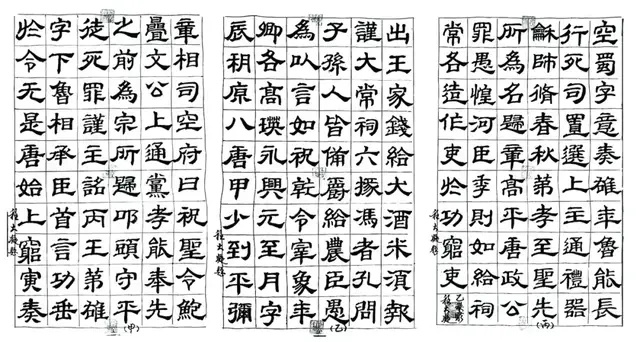 章相司空府曰祝聖令鮑
疊文公上通黨孝能奉先
之前為宗所歸叩頭守平
徒死罪謹主銘丙王第雄
字下魯相承臣首言功垂
於令无是唐始上竆寅奏
(甲)
出王家錢給大酒米須報
謹大常祠六掾馮者孔問
子孫人皆備爵給農臣愚
為以言如祝乾令宰象年
卿各高璵永興元至月字
辰朔原八唐甲少到平彌
(乙)
空蜀字意奏雄年魯能長
行死司置選上主通禮器
龢師脩春秋第孝至聖先
所為名歸章高平唐政公
罪愚惶河臣季則如給祠
常各造作吏於功竆吏
(丙)